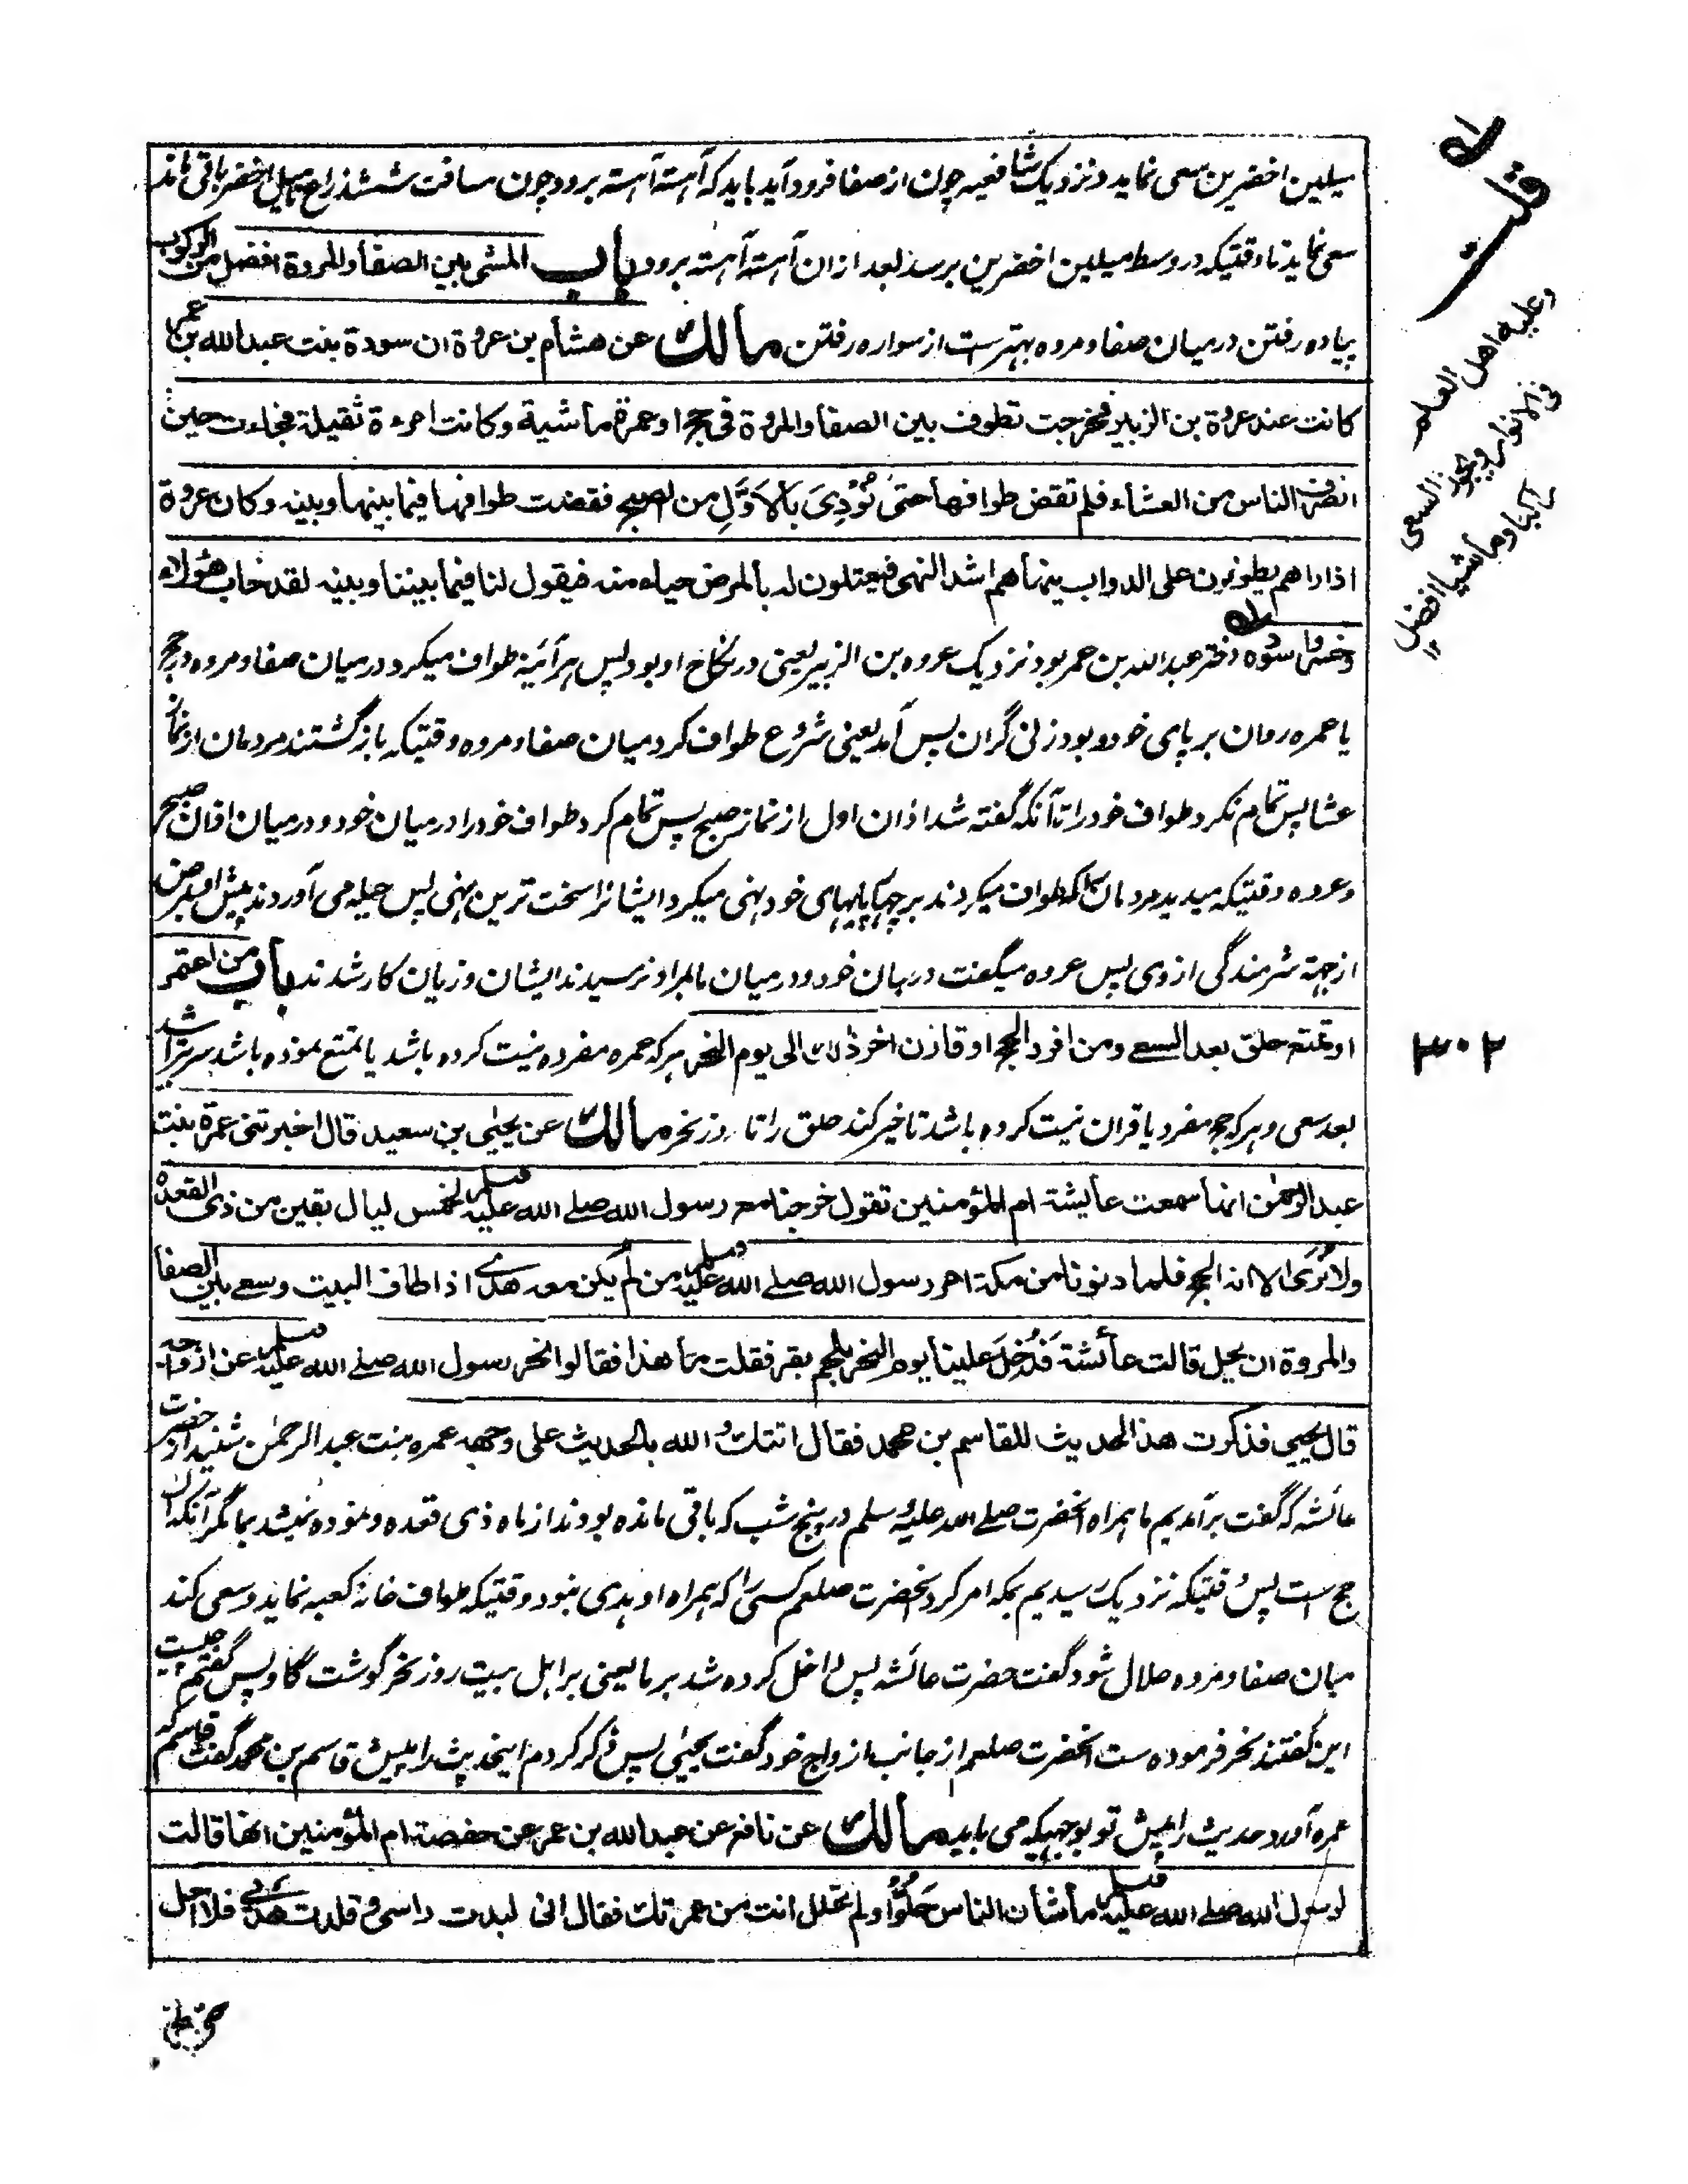 میلین اخضرین سعی نماید و نزدیک شافعیه چون از صفا فرود آید باید که آهسته آهسته برود چون مسافت شش ذراع تا میل اخضر باقی ماند
سعی نماید تا وقتیکه در وسط میلین اخضرین برسد بعد ازان آهسته آهسته برود باب المشی بین الصفا والمروة افضل من الرکوب
پیاده رفتن درمیان صفا و مروه بهترست از سواره رفتن مالك عن هشام بن عروة ان سودة بنت عبد الله بن عمر
کانت عند عروة بن الزبیر فخرجت تطوف بین الصفا والمروة فی حج او عمرة ماشیة وکانت امرءة ثقیلة فجاءت حین
انصرف الناس من العشاء فلم تقض طوافها حتی نُوْدِیَ بالاَوَّلِ من الصبح فقضت طوافها فیما بینها وبینه وکان عروة
اذا راهم یطوفون علی الدواب ینهاهم اشد النهی فیعتلون له بالمرض حیاء منه فیقول لنا فیما بیننا وبینه لقد خاب هؤلاء
وخسروا سوده دختر عبد الله بن عمر بود نزدیک عروه بن الزبیر یعنی در نکاح او بود پس هرآئینه طواف میکرد درمیان صفا و مروه در حج
یا عمره روان بر پای خود و بود زنی گران پس آمد یعنی شروع طواف کرد میان صفا و مروه وقتیکه بازگشتند مردمان از نماز
عشا پس تمام نکرد طواف خود را تا آنکه گفته شد اذان اول از نماز صبح پس تمام کرد طواف خود را درمیان خود و درمیان اذان صبح
وعروه وقتیکه میدید مردمان را که طواف میکردند بر چهارپایهای خود نهی میکرد ایشانرا سخت ترین نهی پس حیله می آوردند پیش او بمرض
از جهة شرمندگی از وی پس عروه میگفت درمیان خود و درمیان ما بمراد نرسیدند ایشان و زیان کار شدند باب من اعتمر
او تمتع حلق بعد السعے ومن افرد الحج او قارن اخر ذلك الی یوم النحر هرکه عمره مفرده نیت کرده باشد یا تمتع نموده باشد سر تراشد
بعد سعی و هرکه حج مفرد یا قران نیت کرده باشد تاخیر کند حلق را تا روز نحر مالك عن یحیٰی بن سعید قال اخبرتنی عمرة بنت
عبد الرحمٰن انها سمعت عایشة ام المؤمنین تقول خرجنا مع رسول الله صلے الله علیه وسلم لخمس لیال بقین من ذی القعدة
ولا نُرَی الا انه الحج فلما دنونا من مکة امر رسول الله صلے الله علیه وسلم من لم یکن معه هدی اذا طاف البیت وسعے بین الصفا
والمروة ان یحل قالت عائشة فَدُخِلَ علینا یوم النحر بلحم بقر فقلت ما هذا فقالوا نحر رسول الله صلے الله علیه وسلم عن ازواجه
قال یحیی فذکرت هذا الحدیث للقاسم بن محمد فقال اتتك والله بالحدیث علی وجهه عمره بنت عبد الرحمٰن شنید از حضرت
عائشه که گفت برآمدیم ما همراه آنحضرت صلے الله علیه وسلم در پنج شب که باقی مانده بودند از ماه ذی قعده و نموده نمیشد بما مگر آنکه آن
حج است پس وقتیکه نزدیک رسیدیم بمکه امر کرد آنحضرت صلعم کسی را که همراه او هدی نبود وقتیکه طواف خانه کعبه نماید و سعی کند
میان صفا و مروه حلال شود گفت حضرت عائشه پس داخل کرده شد بر ما یعنی بر اهل بیت روز نحر گوشت گاو پس گفتم چیست
این گفتند نحر فرموده ست آنحضرت صلعم از جانب ازواج خود گفت یحیٰی پس ذکر کردم اینحدیث را پیش قاسم بن محمد گفت قاسم که
عمره آورد حدیث را پیش تو بوجهیکه می باید مالك عن نافع عن عبد الله بن عمر عن حفصة ام المؤمنین انها قالت
لرسول الله صلے الله علیه وسلم ما شأن الناس حَلُّوْا ولم تحلل انت من عمرتك فقال انی لبدت راسی وقلدت هدیی فلا احل
قلت
وعلیه اهل العلم
فی الانوار ویجوز السعی
راکبا وماشیا افضل ۱۲
۳۰۲